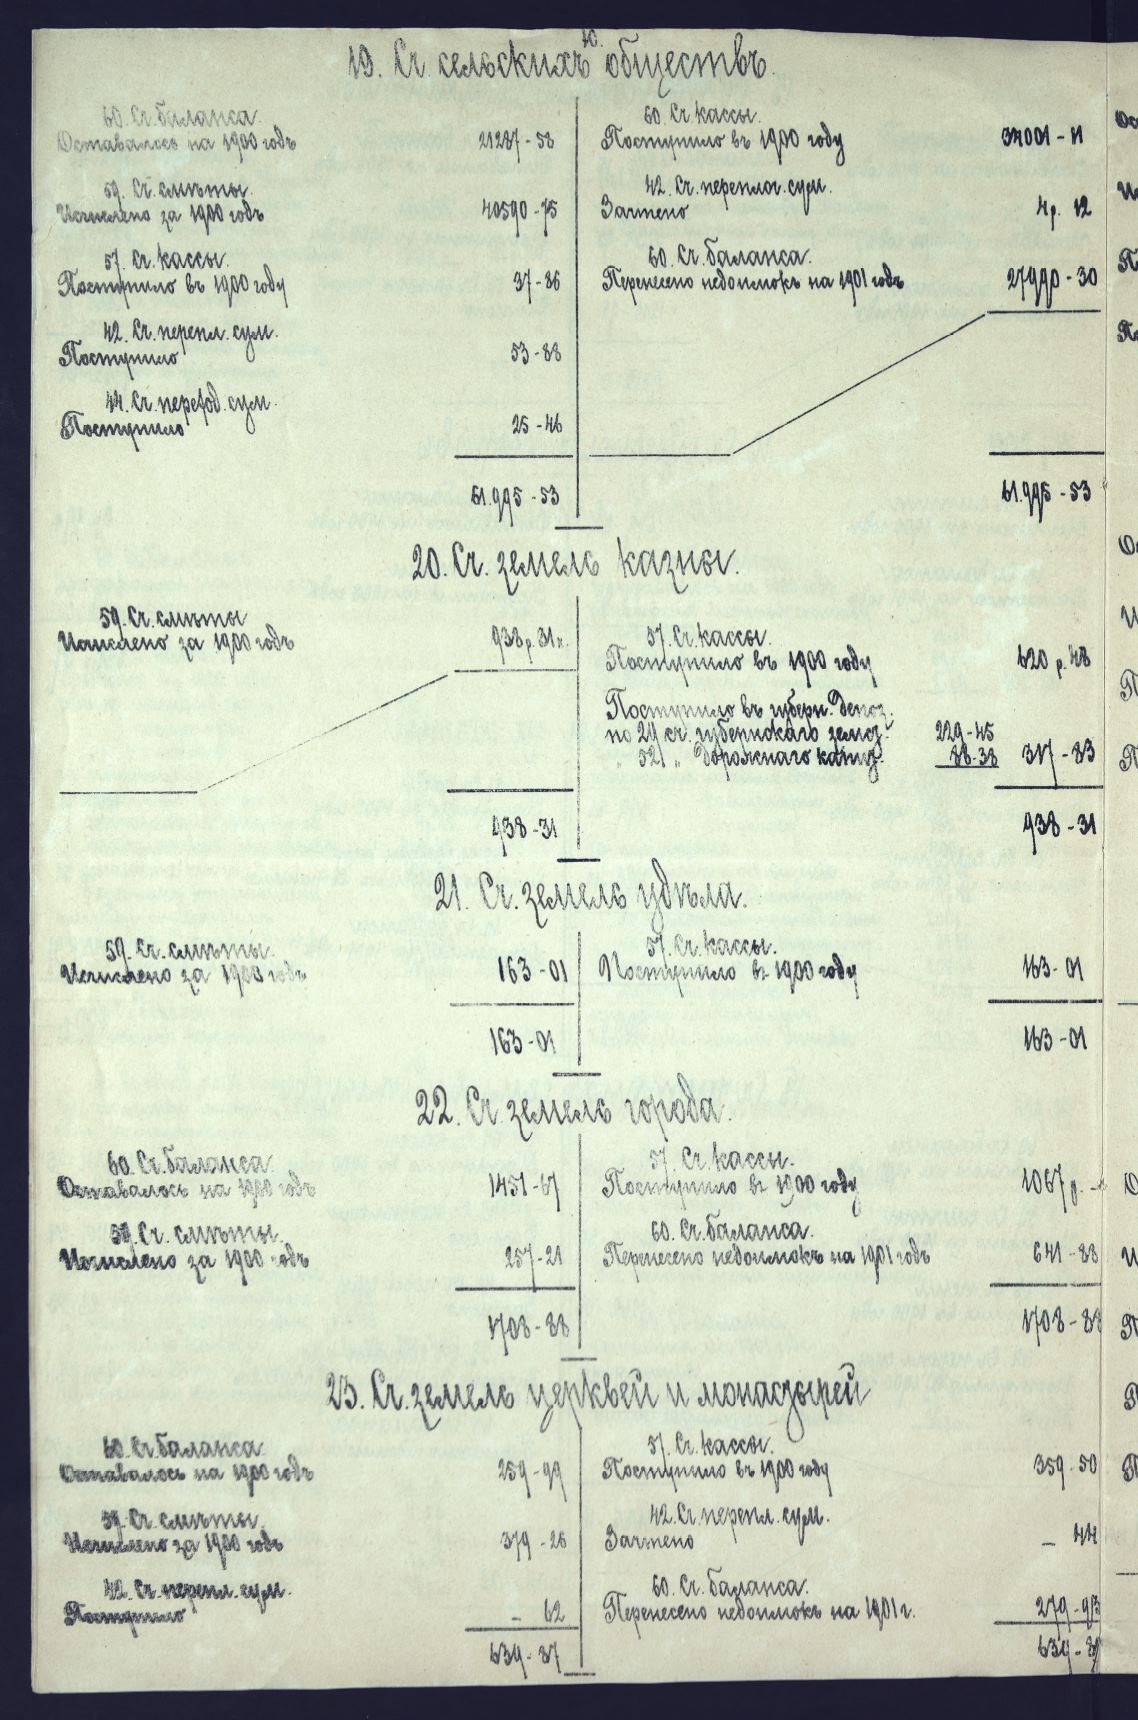 10.
19. Сч. сельскихъ обществъ.
60. Сч. баланса.
Оставалось на 1900 годъ 21287-58
59. Сч. смѣты.
Исчислено за 1900 годъ 40590-75
57. Сч. кассы.
Поступило въ 1900 году 37-86
42. Сч. перепл. сум.
Поступило 53-88
44. Сч. переход. сум.
Поступило 25-46
61.995-53
60. Сч. кассы.
Поступило въ 1900 году 34001-11
42. Сч. переплач. сум.
Зачтено 4р. 12
60. Сч. баланса.
Перенесено недоимокъ на 1901 годъ 27990-30
61.995-53
20. Сч. земель казны.
59. Сч. смѣты
Исчислено за 1900 годъ 938 р. 31 к.
938-31
57. Сч. кассы.
Поступило въ 1900 году 620 р. 48
Поступило въ губерн. депоз.
по 29 сч. губернскаго земст. 229-45
" 52 " дорожнаго капит. 88-38 317-83
938-31
21. Сч. земель удѣла.
59. Сч. смѣты.
Исчислено за 1900 годъ 163-01
163-01
57. Сч. кассы.
Поступило въ 1900 году 163-01
163-01
22. Сч. земель города.
60. Сч. баланса.
Оставалось на 1900 годъ 1451-67
59. Сч. смѣты.
Исчислено за 1900 годъ 257-21
1708-88
57. Сч. кассы.
Поступило въ 1900 году 1067 р. -
60. Сч. баланса.
Перенесено недоимокъ на 1901 годъ 641-88
1708-88
23. Сч. земель церквей и монастырей
60. Сч. баланса.
Оставалось на 1900 годъ 259-99
59. Сч. смѣты.
Исчислено за 1900 годъ 379-26
42. Сч. перепл. сум.
Поступило - 62
639-87
57. Сч. кассы.
Поступило въ 1900 году 359-50
42. Сч. перепл. сум.
Зачтено - 44
60. Сч. баланса.
Перенесено недоимокъ на 1901 г. 279-93
639-87